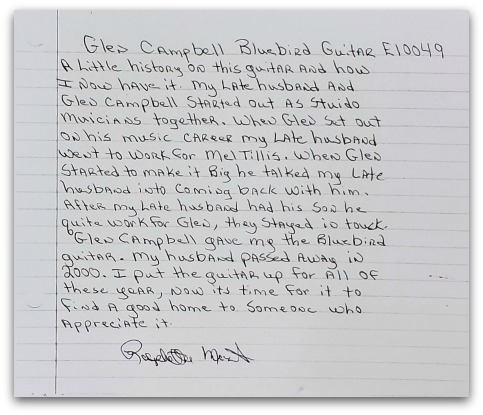 Glen Campbell Bluebird Guitar E10049
A Little history on this guitar and how
I now have it. My Late husband and
Glen Campbell Started out as Stuido
Muicians together. When Glen set out
on his music career my Late husband
went to work for Mel Tillis. When Glen
Started to make it Big he talked my Late
husband into coming back with him.
After my Late husband had his son he
quite work for Glen, they stayed in touch.
Glen Campbell gave my the Bluebird
guitar. My husband passed away in
2000. I put the guitar up for all of
these year, now its time for it to
find a good home to someone who
appreciate it.